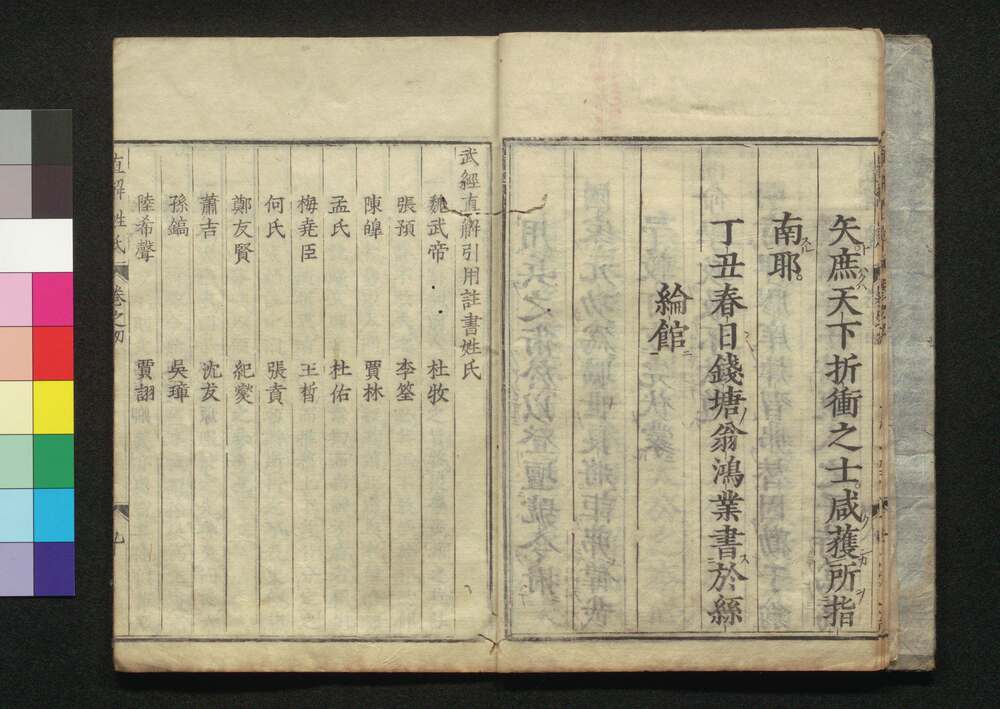 矢庶天下折衝之士咸獲所指
南耶
丁丑春日錢塘翁鴻業書於絲
綸館
武經直解引用註書姓氏
魏武帝 杜牧
張預 李筌
陳皥 賈林
孟氏 杜佑
梅堯臣 王晳
何氏 張賁
鄭友賢 紀燮
蕭吉 沈友
孫鎬 吳璋
陸希聲 賈詡
直解 姓氏 卷之初 九